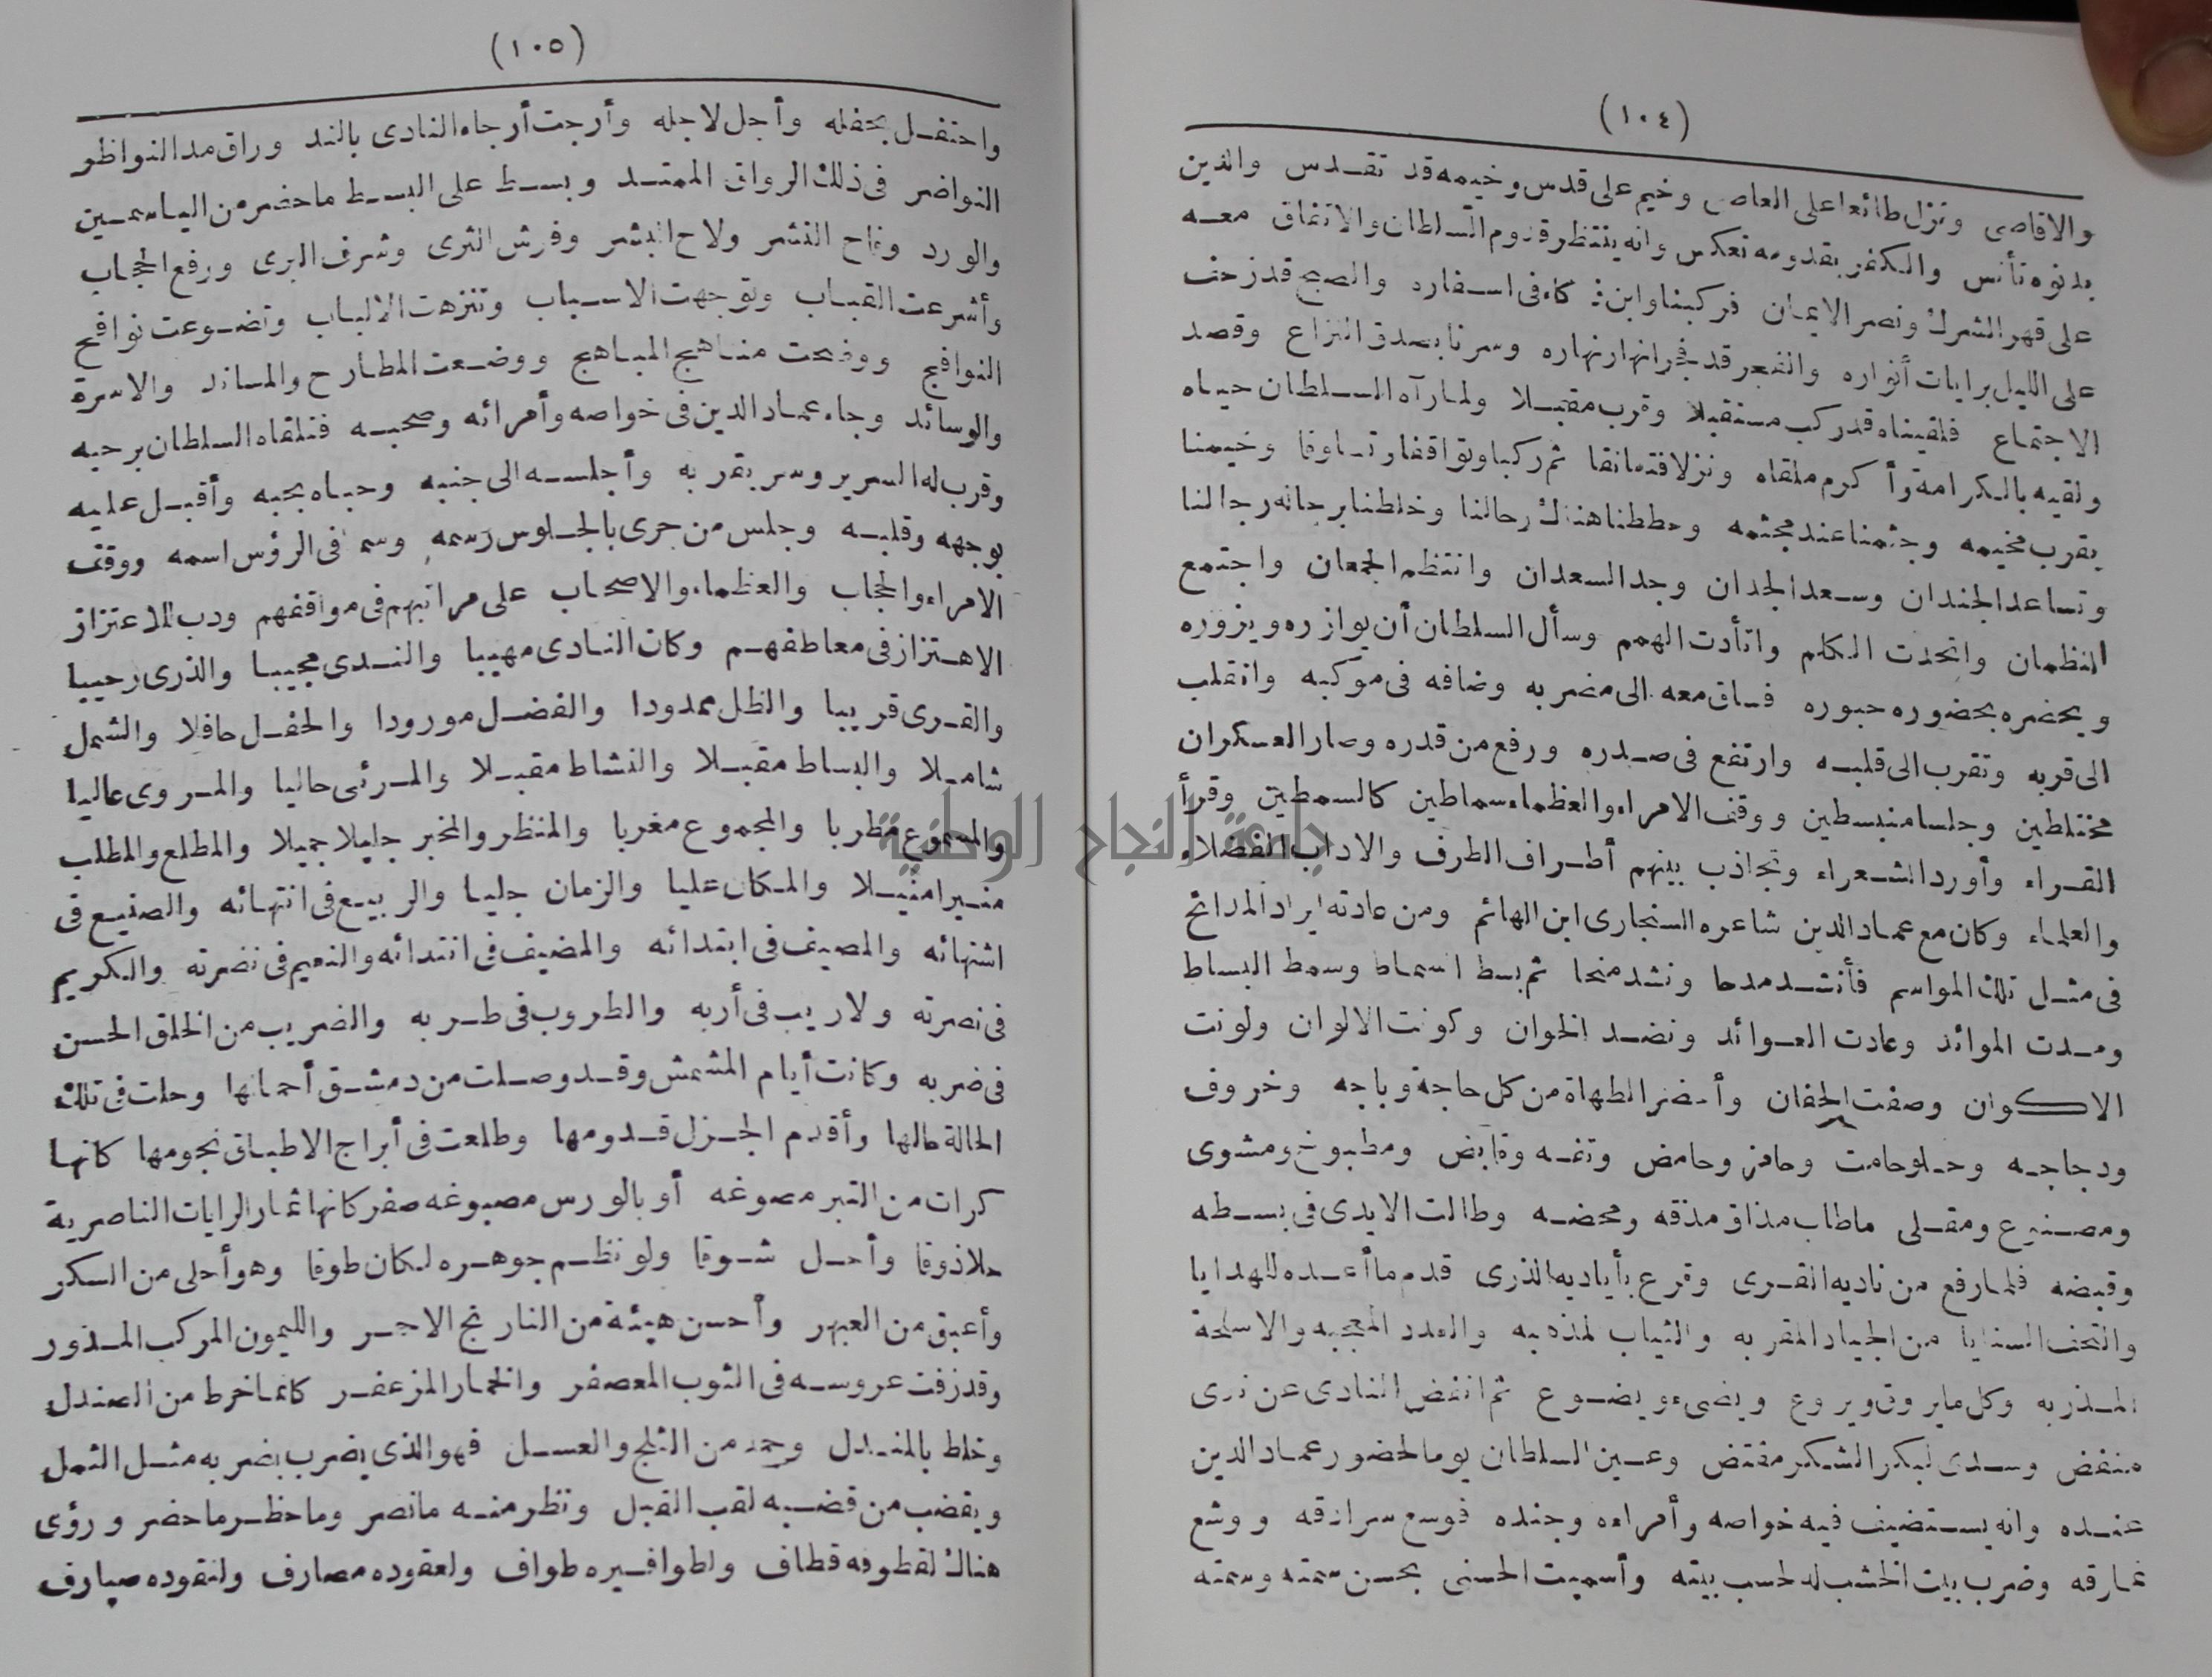 (١٠٤)
والاقاصى ونزل طائعا على العاصى وخيم على قدس وخيمه قد تقدس والدين
بدنوه تأنس والكفر بقدومه تعكس وانه ينتظر قدوم السلطان والاتفاق معه
على قهر الشرك ونصر الايمان فركبنا وابن ذكاء فى اسفاره والصبح قد زحف
على الليل برايات أنواره والفجر قد فجر انهار نهاره وسرنا بصدق النزاع وقصد
الاجتماع فلقيناه قد ركب مستقبلا وقرب مقبلا ولما رآه السلطان حياه
ولقيه بالكرامة وأكرم ملقاه ونزلا فتعانقا ثم ركبا وتوافقا وتساوقا وخيمنا
بقرب مخيمه وجثمنا عند مجثمه وحططنا هنالك رحالنا وخلطنا برجاله رجالنا
وتساعد الجندان وسعد الجدان وجد السعدان وانتظم الجمعان واجتمع
النظمان واتحدت الكلم واتأدت الهمم وسأل السلطان أن يوازره ويزوره
ويحضره بحضوره حبوره فساق معه الى مضربه وضافه فى موكبه وانقلب
الى قربه وتقرب الى قلبه وارتفع فى صدره ورفع من قدره وصار العسكران
مختلطين وجلسا منبسطين ووقف الامراء والعظماء سماطين كالسمطين وقرأ
القراء وأورد الشعراء وتجاذب بينهم أطراف الطرف والاداب الفضلاء
والعلماء وكان مع عماد الدين شاعره السنجارى ابن الهائم ومن عادته ايراد المدائح
فى مثل تلك المواسم فأنشد مدحا ونشد منحا ثم بسط السماط وسمط البساط
ومدت الموائد وعادت العوائد ونضد الخوان وكونت الالوان ولونت
الاكوان وصفت الجفان وأحضر الطهاة من كل حاجة وباجه وخروف
ودجاجه وحلو حامت وحامز وحامض وتفه وقابض ومطبوخ ومشوى
ومصنوع ومقلى ماطاب مذاق مذقه ومحضه وطالت الايدى فى بسطه
وقبضه فلما رفع من ناديه القرى وقرع بأياديه الذرى قدم ما أعده للهدايا
والتحف السنايا من الجياد المقربه والثياب المذهبه والعدد المعجبه والاسلحة
المذربه وكل ما يروق ويروع ويضىء ويضوع ثم انفض النادى عن ندى
منفض وسدى لبكر الشكر مفتض وعين السلطان يوما لحضور عماد الدين
عنده وانه يستضيف فيه خواصه وأمراءه وجنده فوسع سرادقه ووشع
نمارقه وضرب بيت الخشب له لحسب بيته وأسميت الحسنى بحسن سمته وسمته
(١٠٥)
واحتفل بحفله وأجل لاجله وأرجت أرجاء النادى بالند وراق مد النواظر
النواضر فى ذلك الرواق الممتد وبسط على البسط ما حضر من الياسمين
والورد وفاح النشر ولاح البشر وفرش الثرى وشرف البرى ورفع الحجاب
وأشرعت القباب وتوجهت الاسباب وتنزهت الالباب وتضوعت نوافح
النوافج ووضحت مناهج المباهج ووضعت المطارح والمساند والاسرة
والوسائد وجاء عماد الدين فى خواصه وأمرائه وصحبه فتلقاه السلطان برحبه
وقرب له السرير وسر بقربه وأجلسه الى جنبه وحباه بحبه وأقبل عليه
بوجهه وقلبه وجلس من جرى بالجلوس رسمه وسم فى الرؤس اسمه ووقف
الامراء والحجاب والعظماء والاصحاب على مراتبهم فى مواقفهم ودب الاعتزاز
الاهتزاز فى معاطفهم وكان النادى مهيبا والندى مجيبا والذرى رحيبا
والقرى قريبا والظل ممدودا والفضل مورودا والحفل حافلا والشمل
شاملا والبساط مقبلا والنشاط مقبلا والمرئى حاليا والمروى عاليا
والمسموع مطربا والمجموع مغربا والمنظر والمخبر جليلا جميلا والمطلع والمطلب
منيرا منيلا والمكان عليا والزمان جليا والربيع فى انتهائه والصنيع فى
اشتهائه والمصيف فى ابتدائه والمضيف فى انتدائه والنعيم فى نضرته والكريم
فى نصرته ولا ريب فى أربه والطروب فى طربه والضريب من الخلق الحسن
فى ضربه وكانت أيام المشمش وقد وصلت من دمشق أحمالها وحلت فى تلك
الحالة حالها وأقدم الجزل قدومها وطلعت فى أبراج الاطباق نجومها كانها
كرات من التبر مصوغه أو بالورس مصبوغه صفر كانها ثمار الرايات الناصرية
حلا ذوقا وأحل شوقا ولو نظم جوهره لكان طوقا وهو أحلى من السكر
وأعبق من العبهر وأحسن هيئة من النارنج الاحمر والليمون المركب المدور
وقد زفت عروسه فى الثوب المعصفر والخمار المزعفر كانما خرط من الصندل
وخلط بالمندل وجمد من الثلج والعسل فهو الذى يضرب بضربه مثل الثمل
ويقضب من قضبه لقب القبل ونظر منه ما نضر وما حظر ما حضر ورؤى
هناك لقطوفه قطاف ولطوافيره طواف ولعقوده مصارف ولنقوده صيارف
جامعة النجاح الوطنية